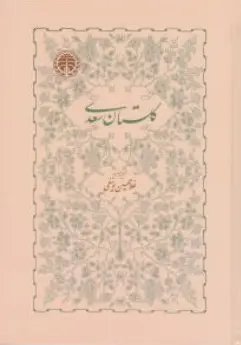 گلستان سعدی
غلامحسین یوسفی